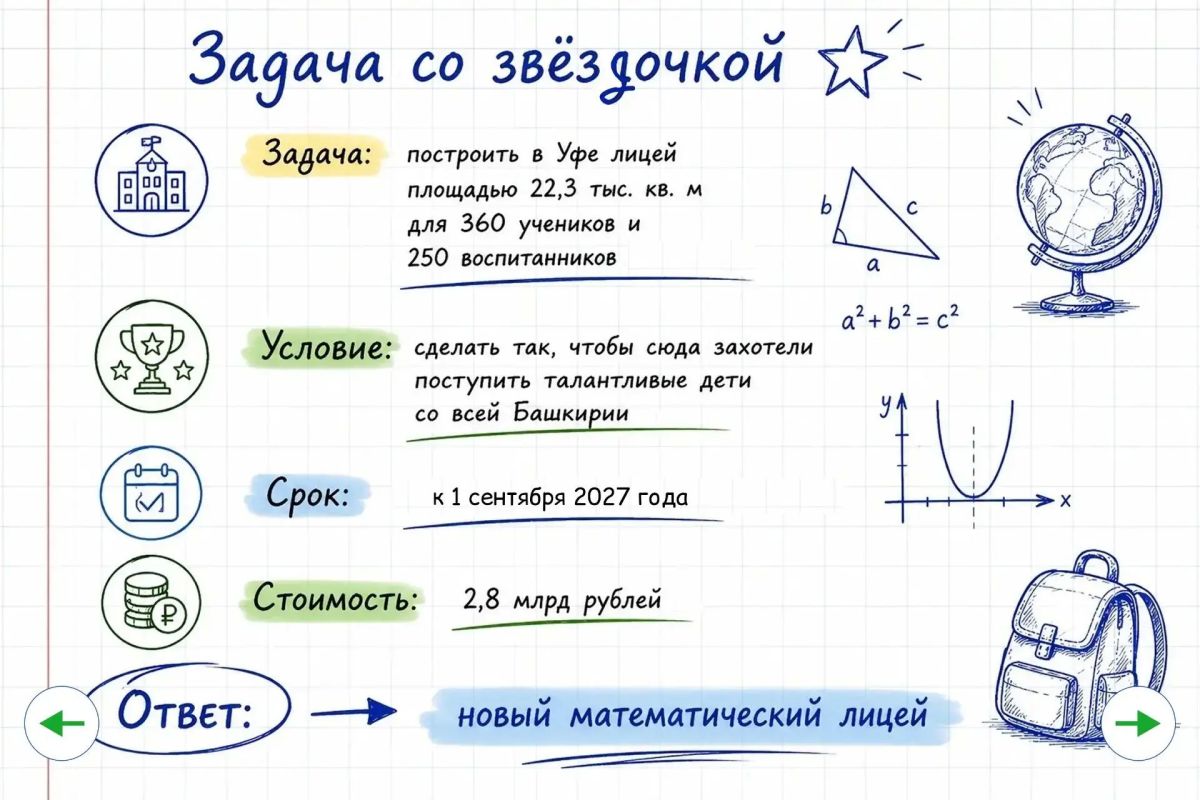 Задача со звёздочкой
Задача:
построить в Уфе лицей
площадью 22,3 тыс. кв. м
для 360 учеников и
250 воспитанников
b
c
a
a² + b² = c²
Условие:
сделать так, чтобы сюда захотели
поступить талантливые дети
со всей Башкирии
y
x
Срок:
к 1 сентября 2027 года
Стоимость:
2,8 млрд рублей
₽
Ответ:
новый математический лицей